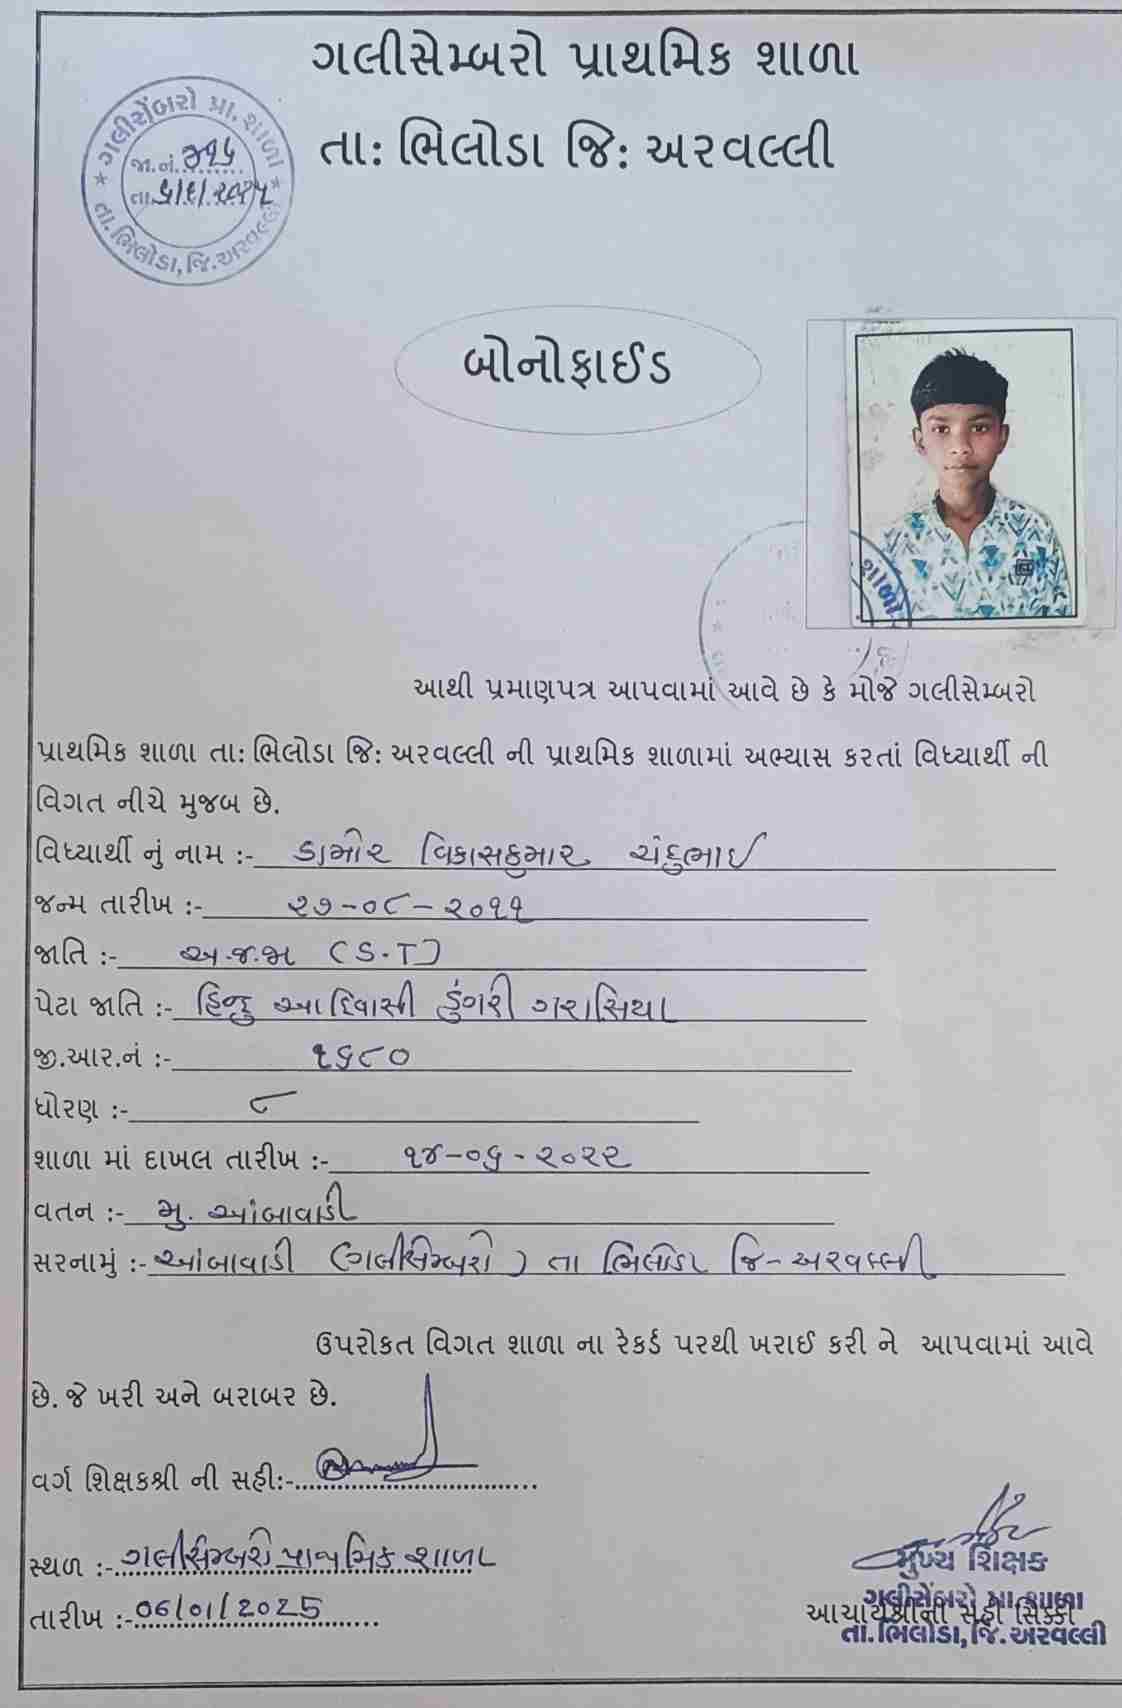 ગલીસેમ્બરો પ્રાથમિક શાળા
તા: ભિલોડા જિ: અરવલ્લી
ગલીસેંબરો પ્રા. શાળા
જા.નં. ૨૧૬
તા.
તા. ભિલોડા, જિ. અરવલ્લી
બોનોફાઈડ
શાળા
આથી પ્રમાણપત્ર આપવામાં આવે છે કે મોજે ગલીસેમ્બરો
પ્રાથમિક શાળા તા: ભિલોડા જિ: અરવલ્લી ની પ્રાથમિક શાળામાં અભ્યાસ કરતાં વિધ્યાર્થી ની
વિગત નીચે મુજબ છે.
વિધ્યાર્થી નું નામ :- ડામોર વિકાસકુમાર ચંદુભાઈ
જન્મ તારીખ :- ૨૭-૦૮-૨૦૧૧
જાતિ :- અ.જ.જા (S.T)
પેટા જાતિ :- હિન્દુ આદિવાસી ડુંગરી ગરાસિયા
જી.આર.નં :- ૧૬૮૦
ધોરણ :- ૮
શાળા માં દાખલ તારીખ :- ૧૪-૦૬-૨૦૨૨
વતન :- મુ. આંબાવાડી
સરનામું :- આંબાવાડી (ગલીસેમ્બરો) તા ભિલોડા જિ-અરવલ્લી
ઉપરોકત વિગત શાળા ના રેકર્ડ પરથી ખરાઈ કરી ને આપવામાં આવે
છે. જે ખરી અને બરાબર છે.
વર્ગ શિક્ષકશ્રી ની સહી:-
સ્થળ :- ગલીસેમ્બરો પ્રાથમિક શાળા
તારીખ :- 06/01/2025
મુખ્ય શિક્ષક
ગલીસેંબરો પ્રા. શાળા
આચાર્યશ્રીની સહી સિક્કો
તા. ભિલોડા, જિ. અરવલ્લી